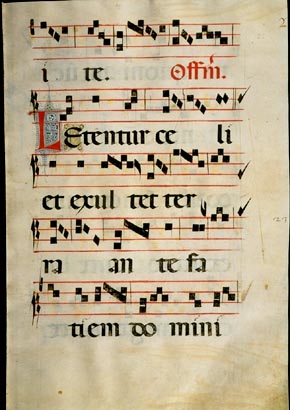 i te. Offm̃.
Letentur ce li
et exul tet ter
ra an te fa
tiem do mini